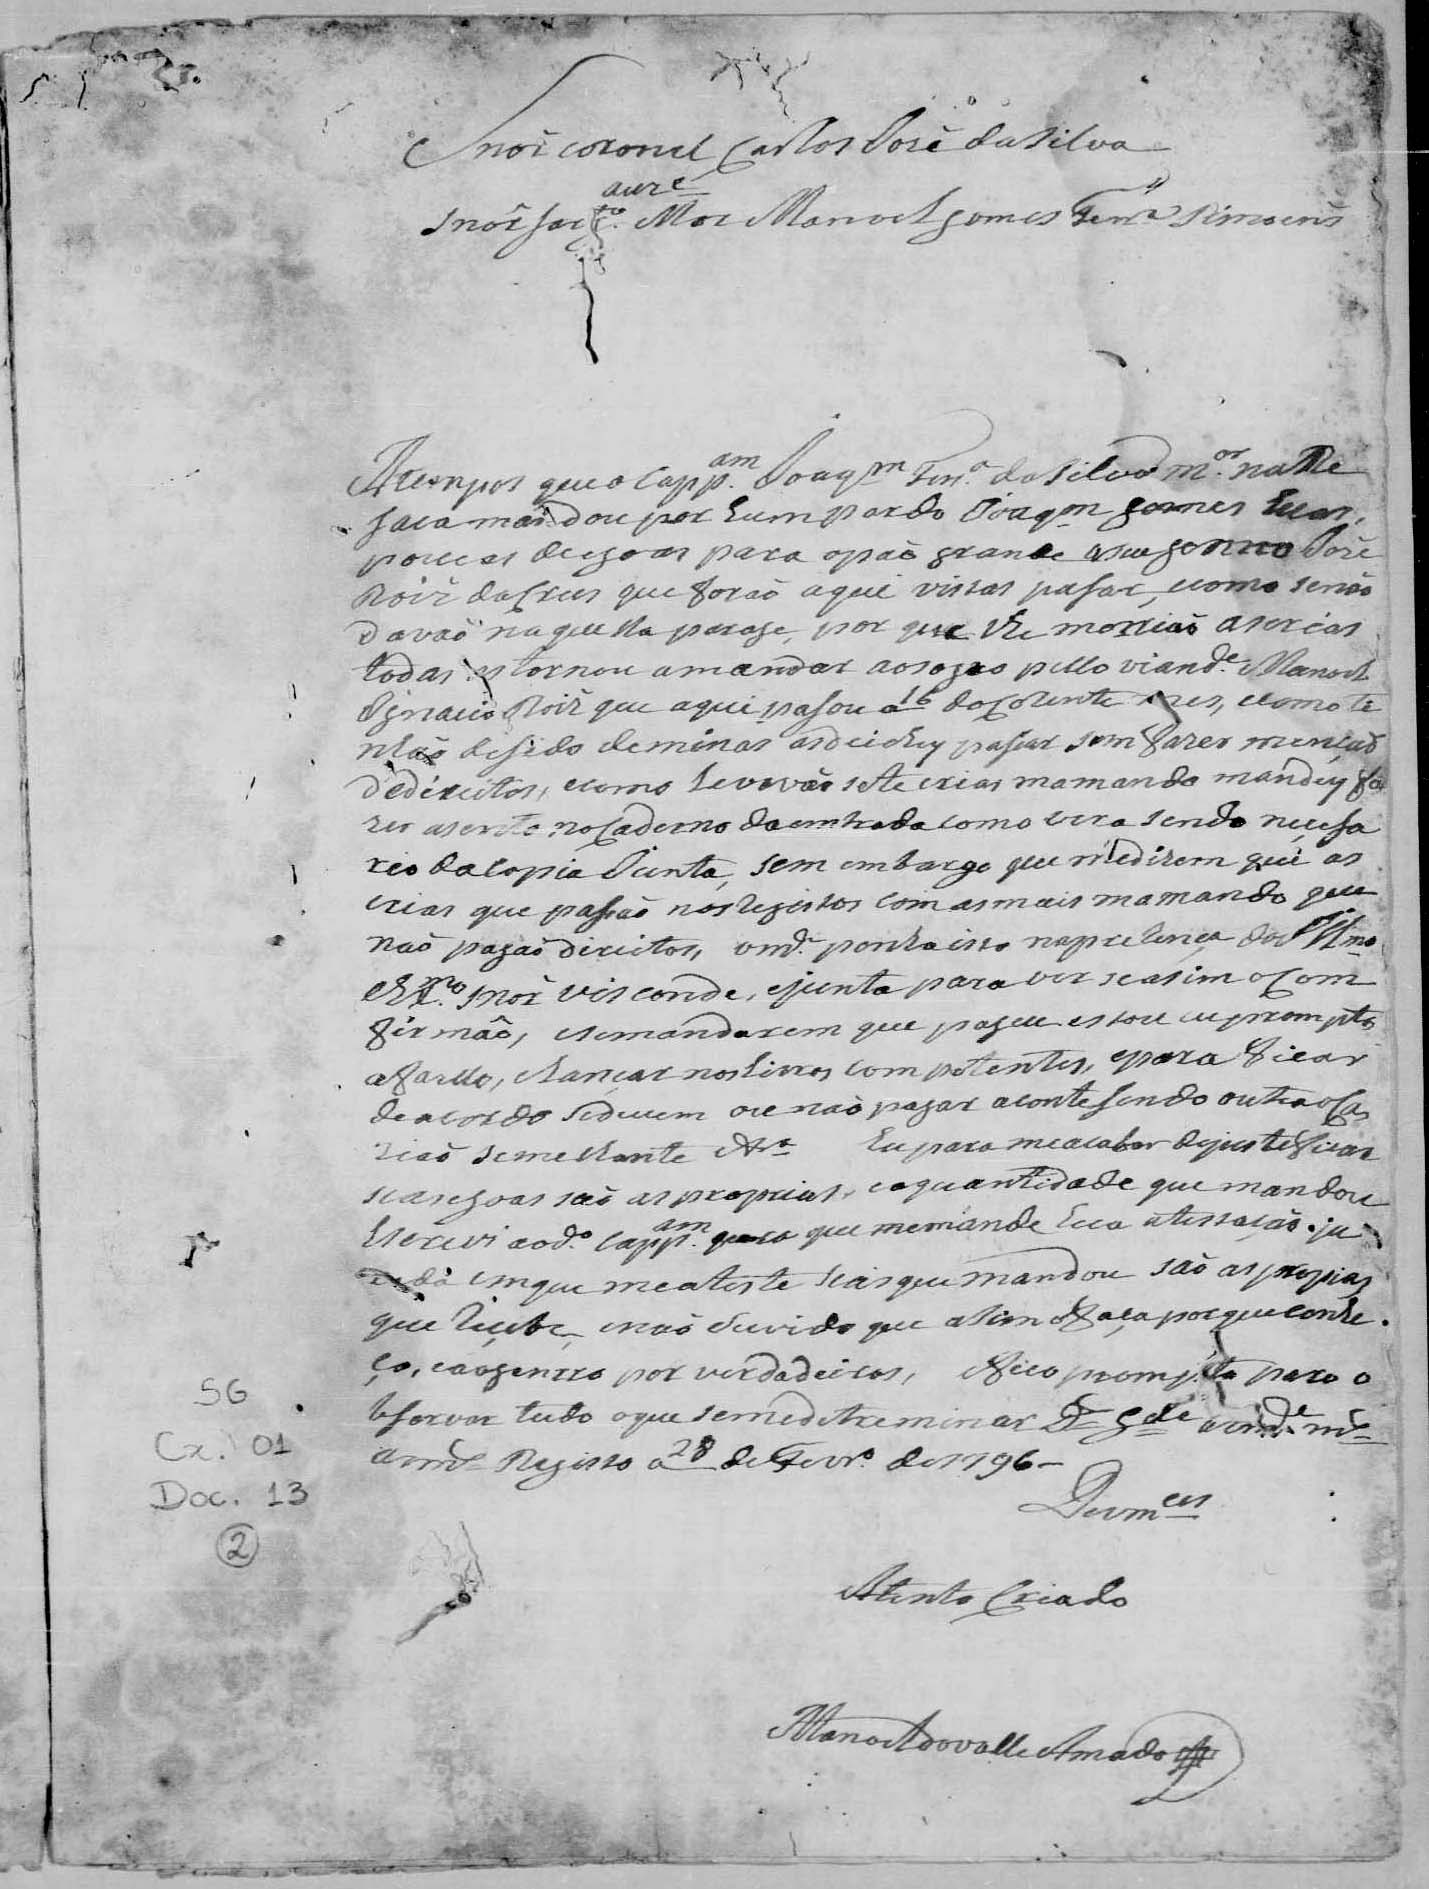 Snor coronel Carlos Jozé da Silva
aure
Snor Mor Manoel gomes
Atempos que o Capp.am Joaq.m Ferr.a da Silva m.or na Re
saca mandou por hum pardo Joaq.m gomes huas
poucas de egoas para o paõ grande a seu genrro Jozé
Roiz da Crus que foraõ aqui vistas pasar, e como senaõ
davaõ naquella parage, por que lhe morriaõ as crias
todas as tornou a mandar ao sogro pello viand.e Manoel
Ignacio Roiz que aqui pasou a 16 do Corente mes, e como ti
nhaõ desido de minas as deichey pasar sem fazer mençaõ
de direitos, e como levavaõ sete crias mamando mandey fa
zer asento no Caderno da entrada como vera sendo neçesa
rio da Copia Junta, sem embargo que me dizem que as
crias que pasaõ nos Registos com as mais mamando que
naõ pagaõ direitos, vmd.e ponha isto na prezença do Illmo
e Ex.mo Snor Visconde, e junta para ver se asim o Com
firmaõ, e se mandarem que pague estou eu prompto
a fazello, e lançar nos Livros Competentes, e para ficar
de acordo se devem ou naõ pagar acontesendo outra oCa
ziaõ semelhante Eu para me acabar de justeficar
se as egoas saõ as proprias, e a quantidade que mandou
Escrevi ao d.o Capp.am para que me mande hua atestaçaõ ju
rada em que me ateste se as que mandou saõ as propias
que Reçebe, e naõ duvido que asim o faça porque conhe
ço, e ao genrro por verdadeiros, e fico prompto para o
bservar tudo o que se me detreminar D.s g.de a vmd.e m.s
ann.s Registo a 28 de Fevr.o de 1796
De vm.ces
Atento Criado
Manoel do valle Amado
SG
Cx. 01
Doc. 13
2